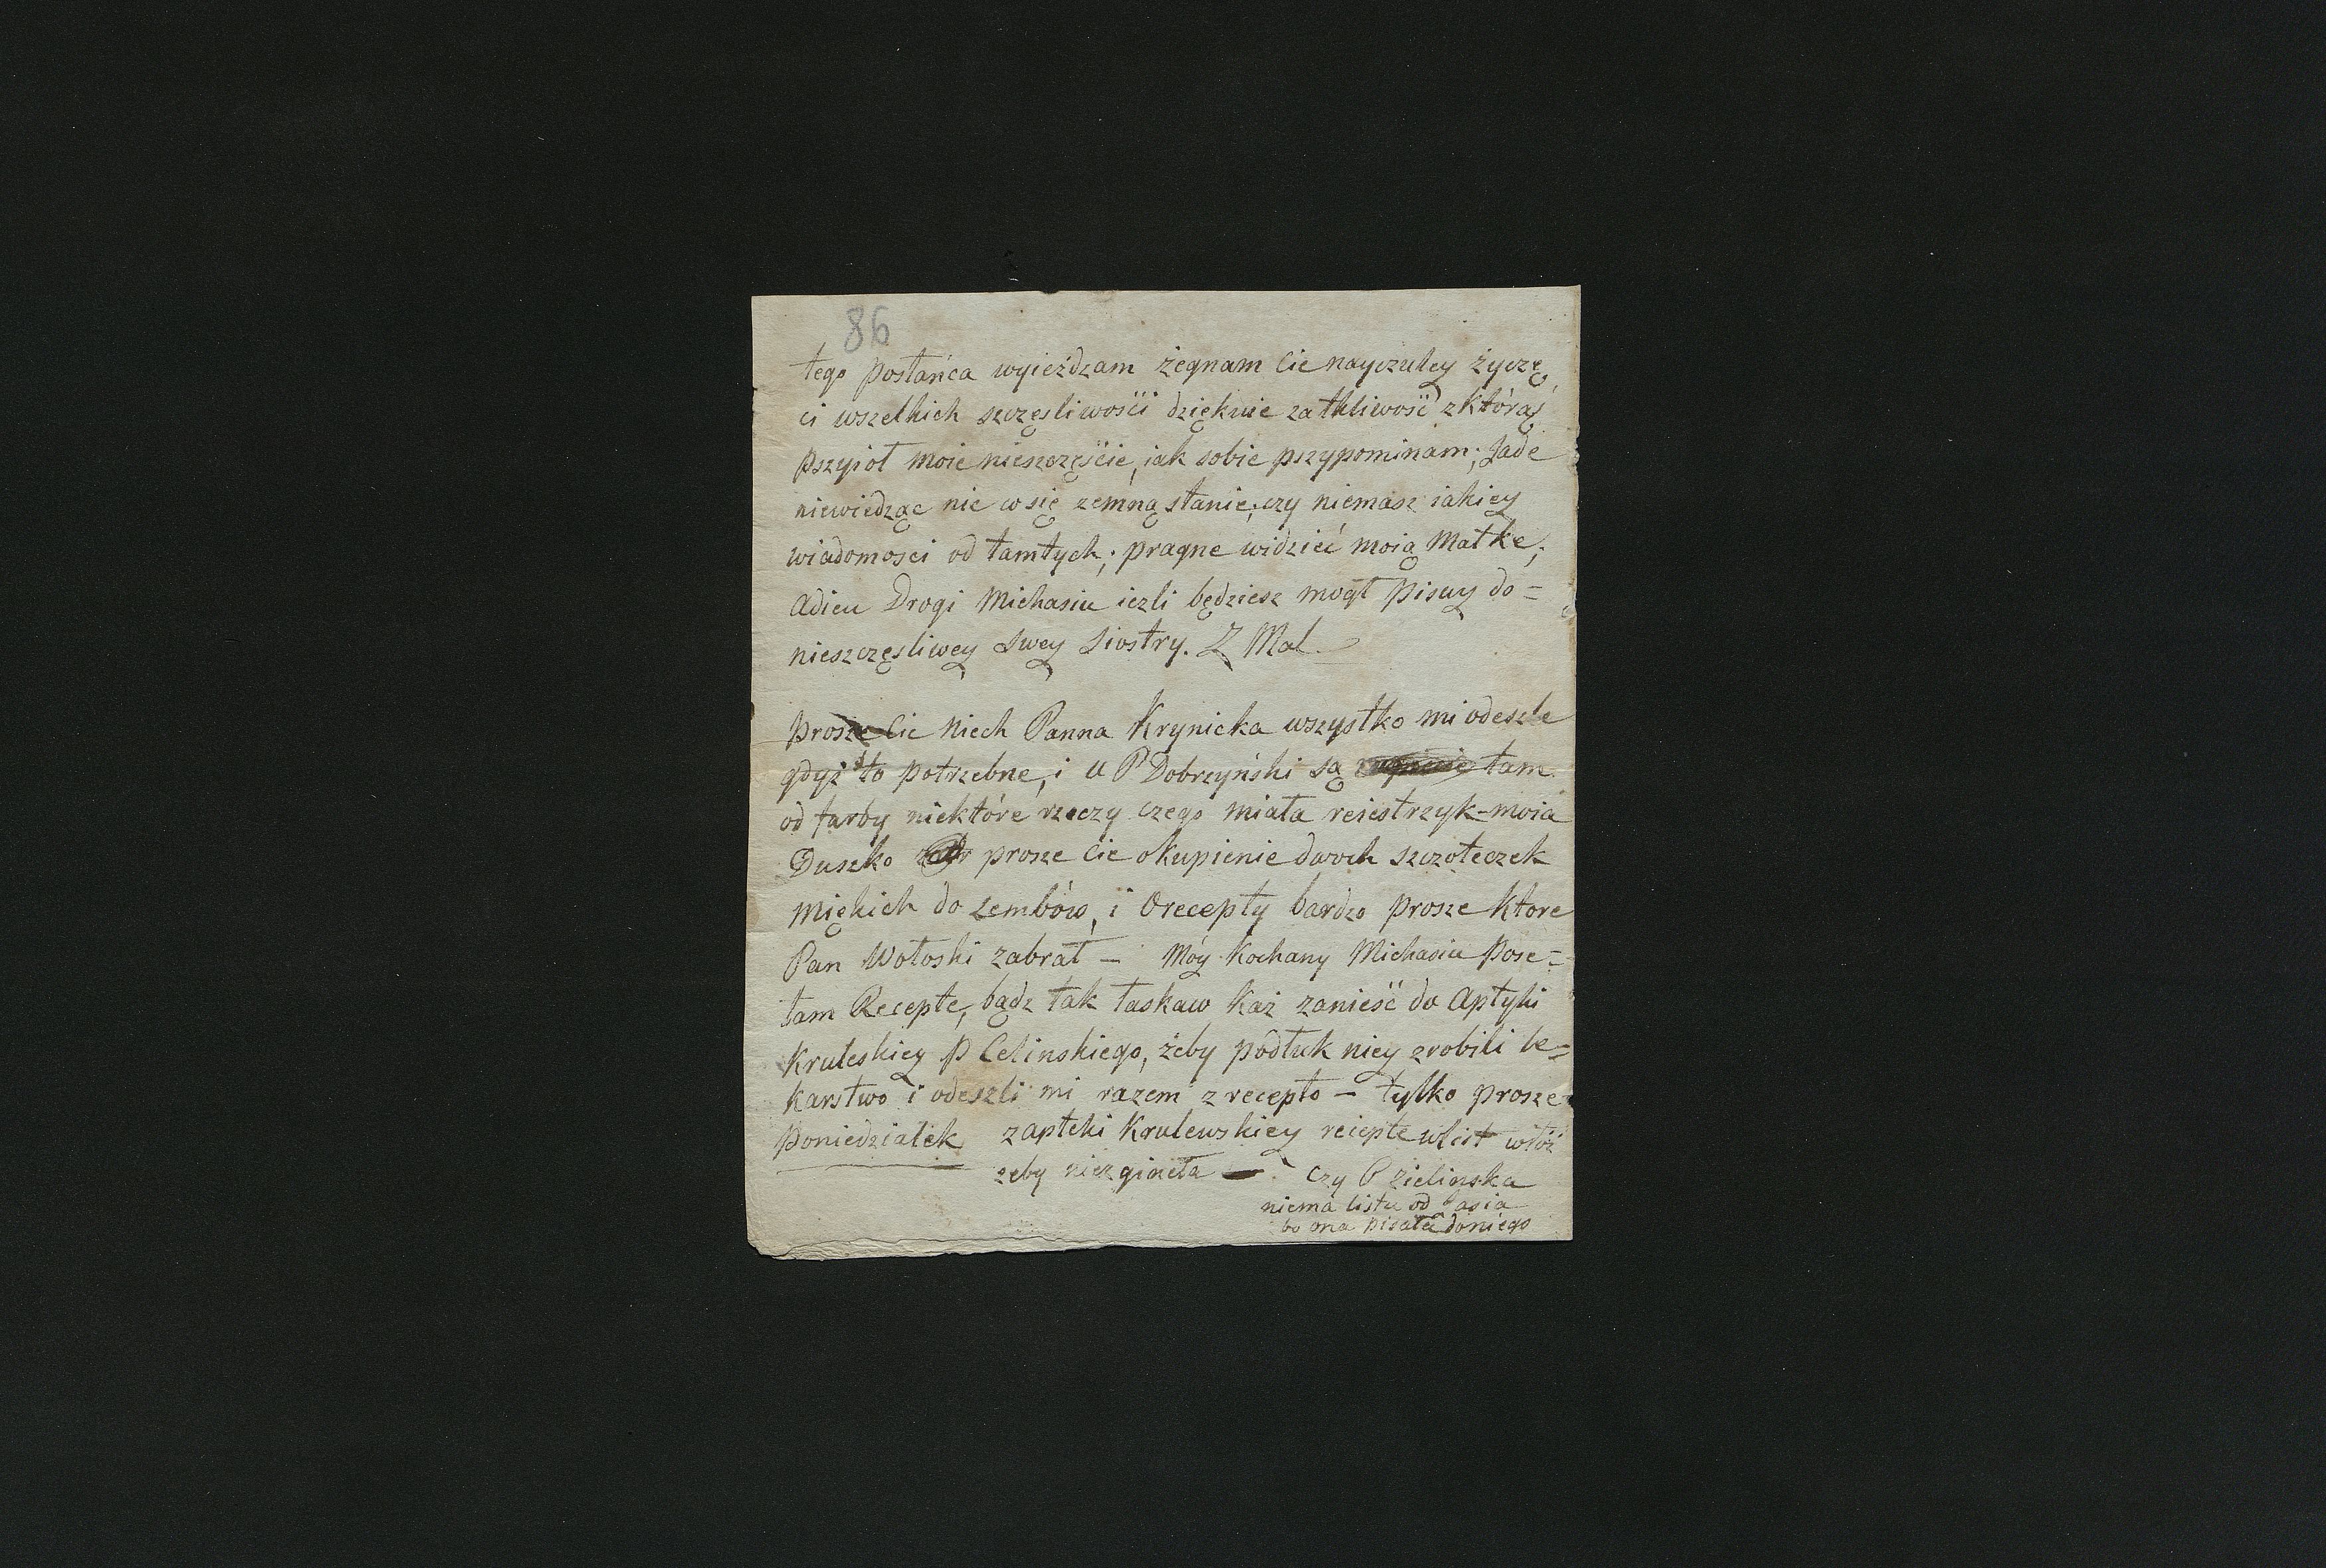 86
tego posłańca wyieżdzam żegnam Cie nayczuley życzę
ci wszelkich szczęsliwośći dziękuie za tkliwość zktóraś
pszyioł moie nieszczęście, iak sobie pszypominam; Jade
niewiedząc nic co się zemną stanie; czy niemasz iakiey
wiadomosci od tamtych; pragne widzieć moią Matke;
Adieu Drogi Michasiu iezli będziesz mogł pisuy do=
nieszczęsliwey swey Siostry. Z Mal.
prosze Cie niech Panna Krynicka wszystko mi odeszle
gdyż to potrzebne, i u P Dobrzyński są tam
od farby niektóre rzeczy czego miała reiestrzyk - moia
Duszko prosze Cie okupienie dwoch szczoteczek
miękich do zembów, i Orecepty bardzo prosze ktore
Pan Wołoski zabrał - Móy Kochany Michasiu pose=
łam Recepte, bądz tak łaskaw każ zanieść do Aptyki
Kruleskiey P Celinskiego, żeby podłuk niey zrobili le=
karstwo i odeszli mi razem z recepto - tylko prosze
poniedziałek zapteki Krulewskiey recepte wlist włoż
żeby niezgineła - Czy P Zielinska
niema listu od Jasia
bo ona pisała doniego